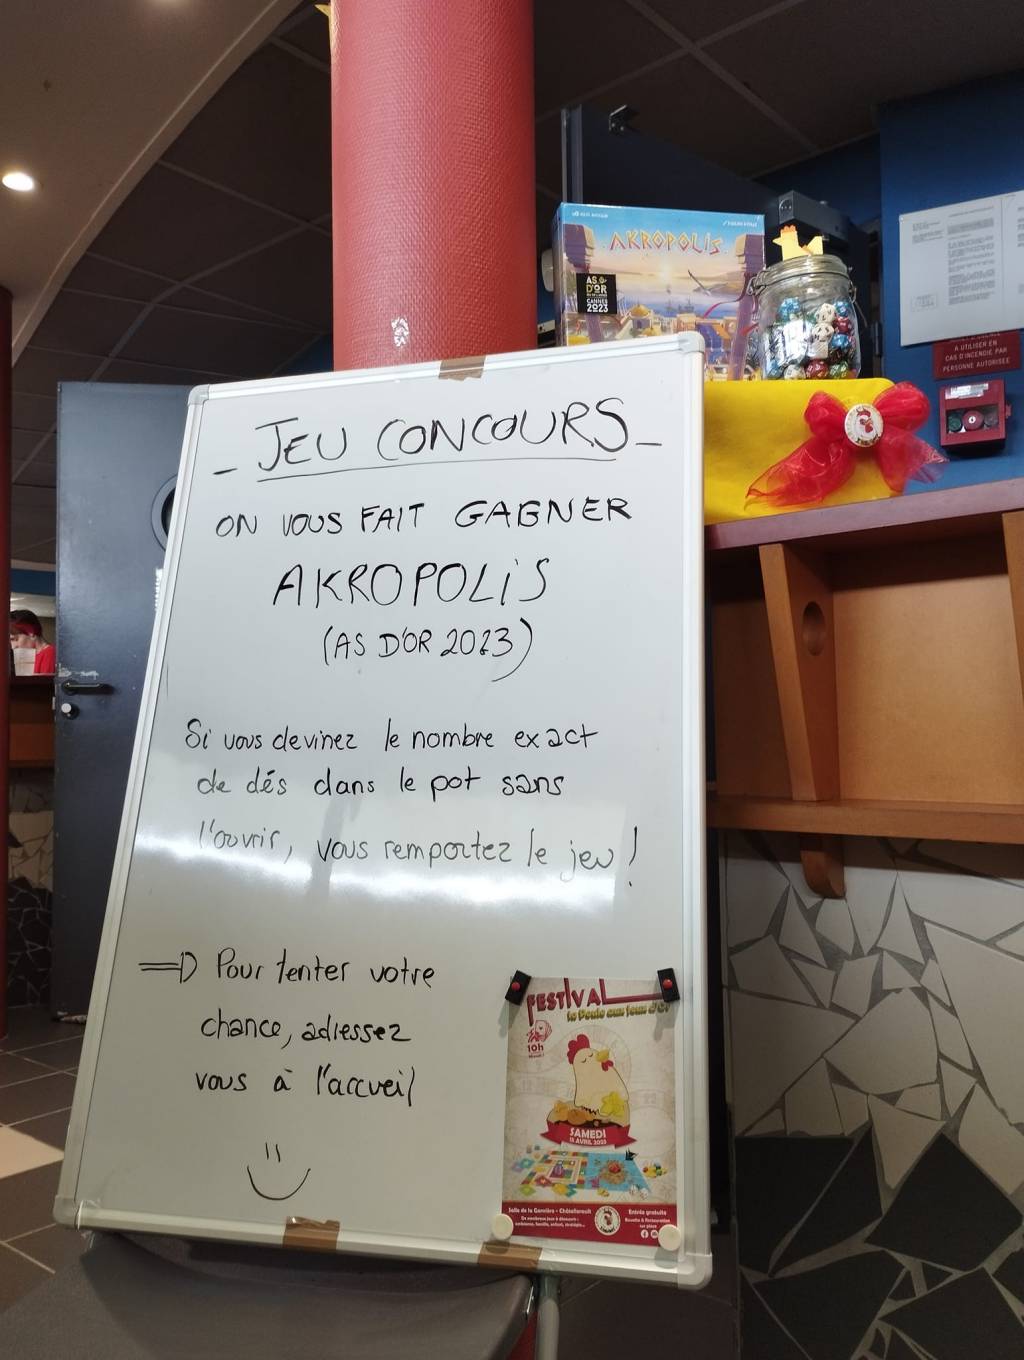 AKROPOLIS
AS
D'OR
CANNES
2023
A UTILISER EN
CAS D'INCENDIE PAR
PERSONNE AUTORISEE
- JEU CONCOURS -
ON VOUS FAIT GAGNER
AKROPOLIS
(AS D'OR 2023)
Si vous devinez le nombre exact
de dés dans le pot sans
l'ouvrir, vous remportez le jeu !
=> Pour tenter votre
chance, adressez
vous à l'accueil
FESTIVAL
la Poule aux Jeux d'Or
10h
SAMEDI
15 AVRIL 2023
Salle de la Gornière - Châtellerault
De nombreux jeux à découvrir :
Entrée gratuite
Buvette & Restauration
sur place